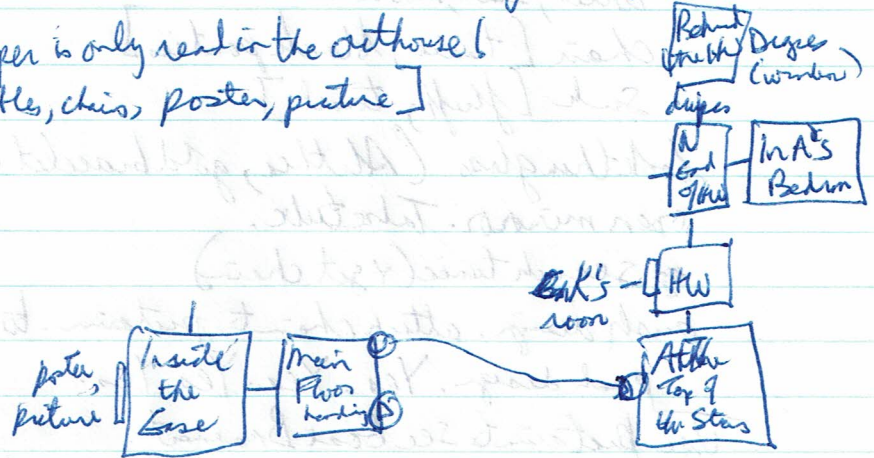 is only read in the outhouse!
chairs, poster, picture]
Behind
Drapes
(window)
drapes
N
End
of HW
In A's
Bedroom
HW
K's
room
At the
Top of
the Stairs
poster,
picture
Inside
the
Main
Floor
Landing
U
D
D